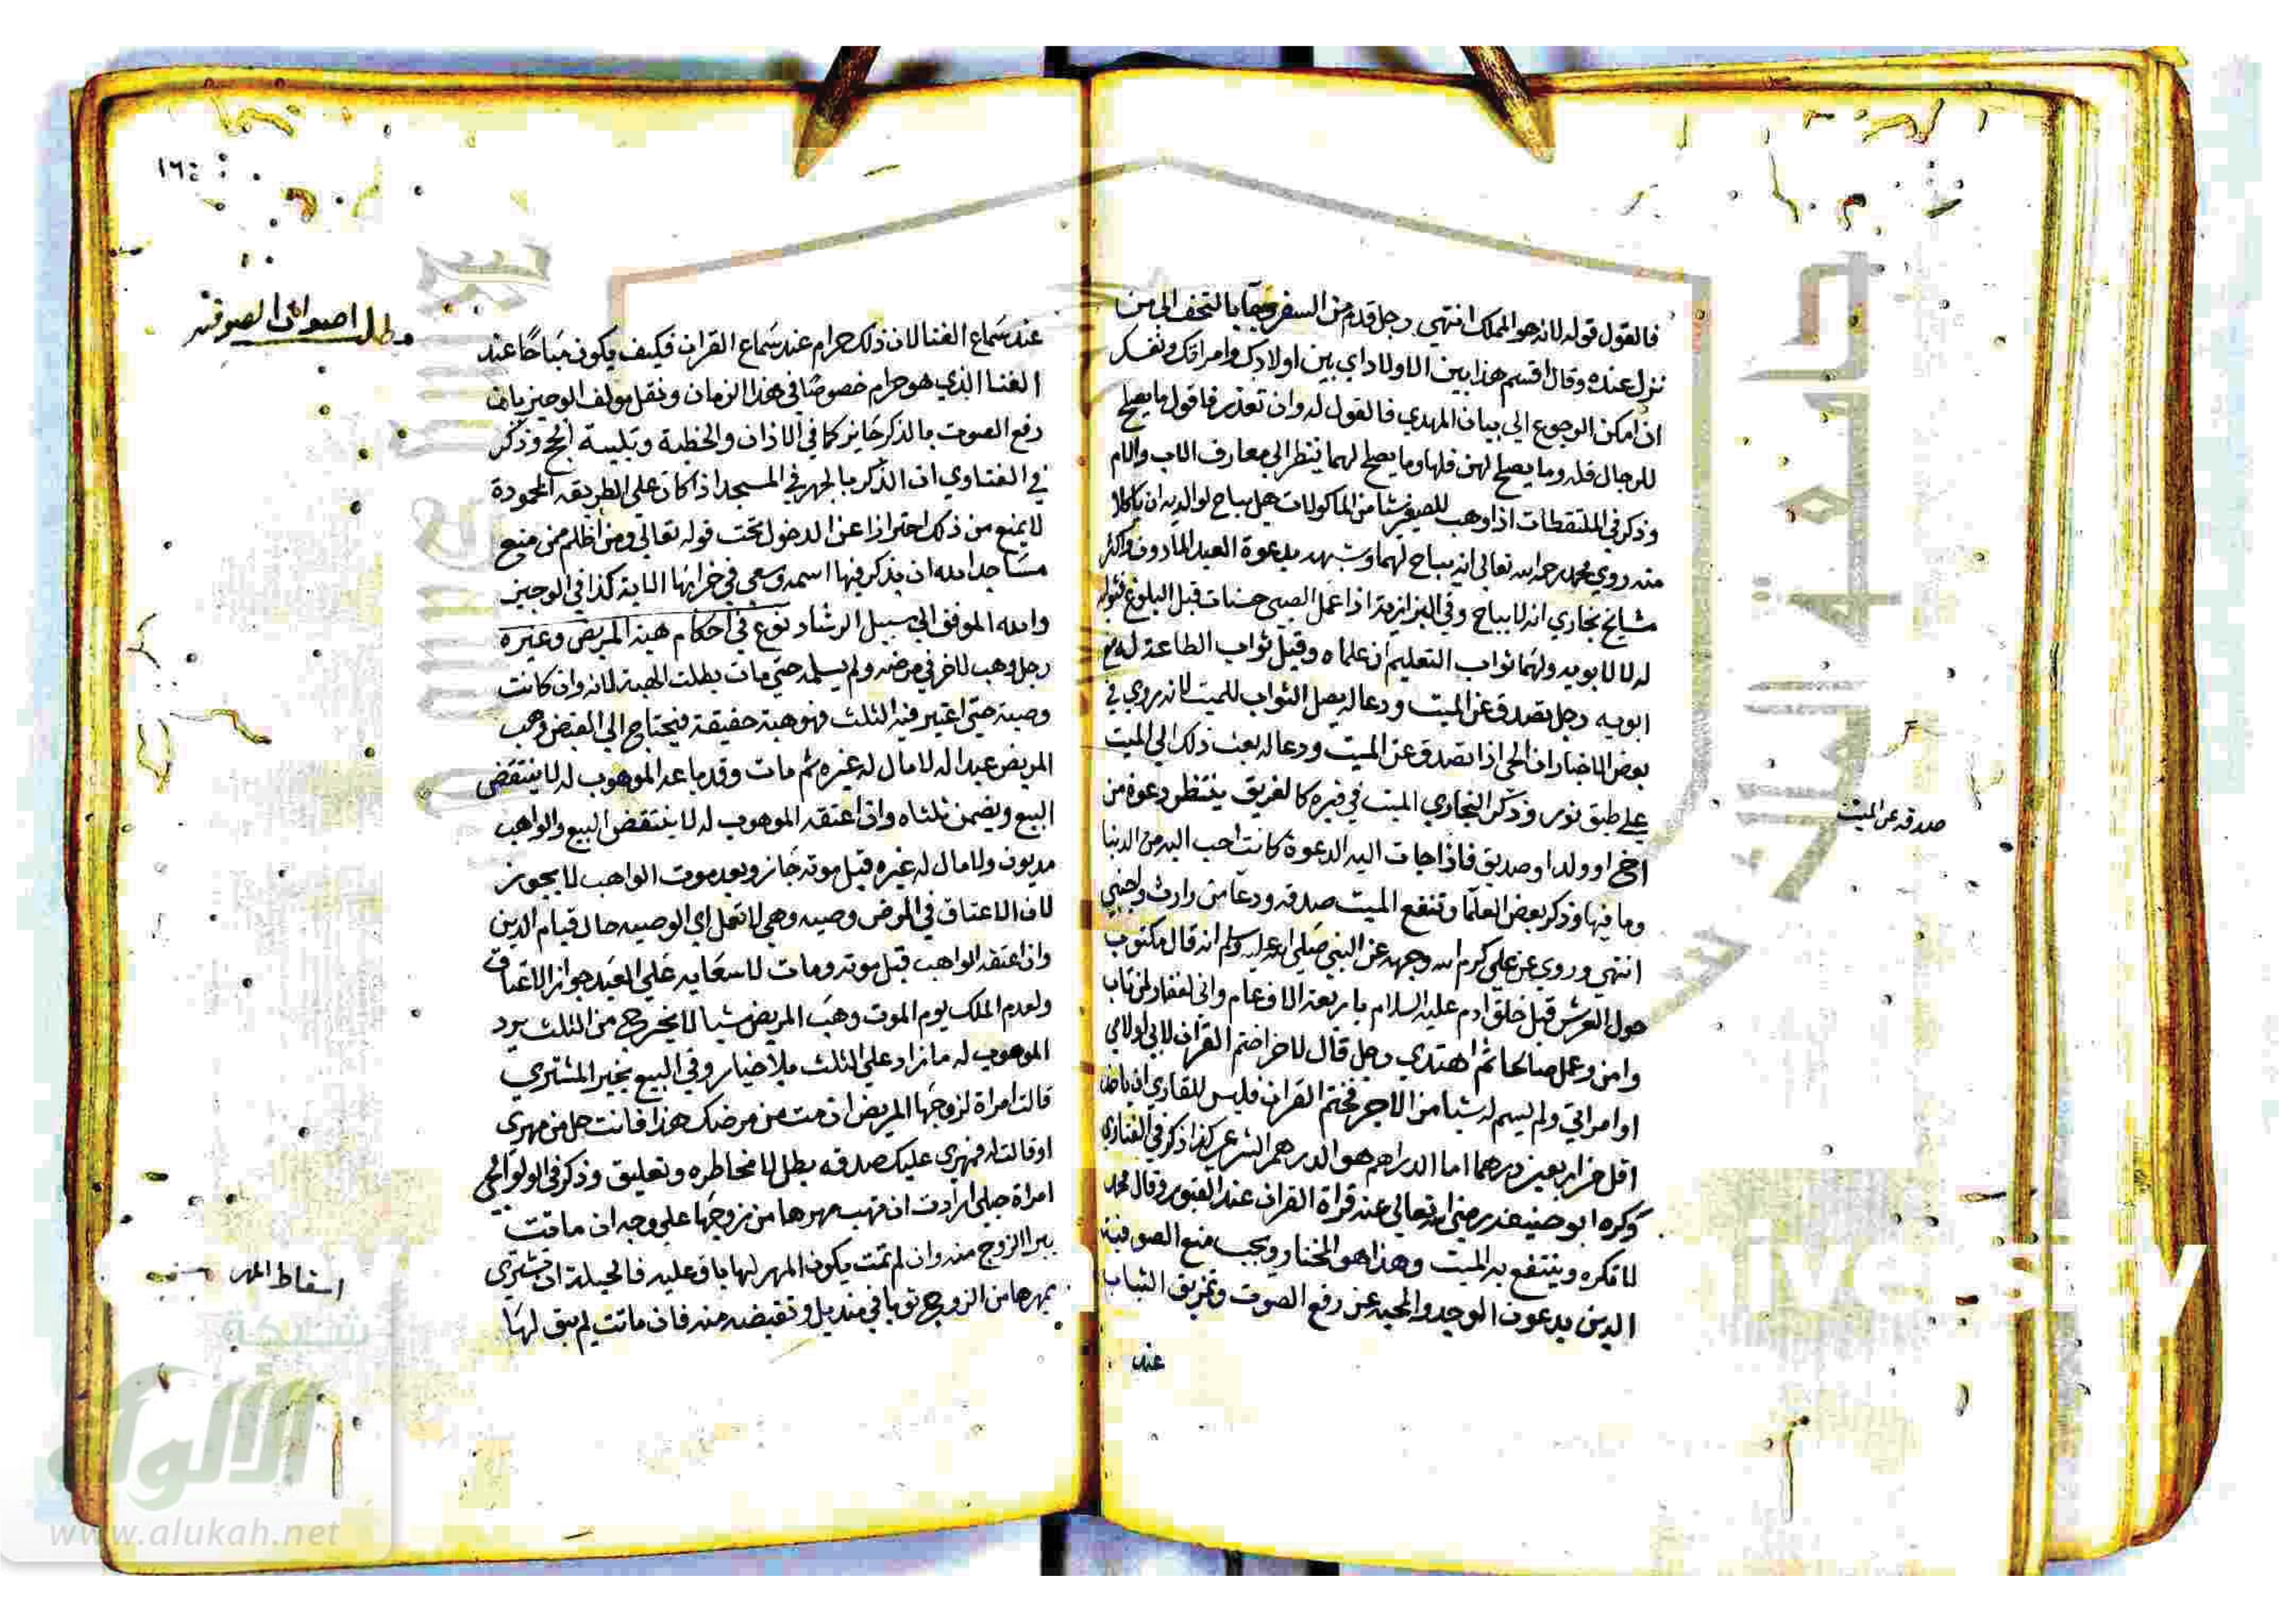 فالقول قوله لانه هو المملك انتهى رجل قدم من السفر وجاء بالتحف الى من
نزل عنده وقال اقسم هذا بين الاولاد اي بين اولادك وامراتك ونفسك
ان امكن الرجوع الى بيان المهدي فالقول له وان تعذر فاقول ما يصلح
للرجال فله وما يصلح لهن فلها وما يصلح لهما ينظر الى معارف الاب والام
وذكر في الملتقطات اذا وهب للصغير شيا من الماكولات هل يباح لوالديه ان ياكلا
منه روي محمد رحمه الله تعالى انه يباح لهما وشبهه بدعوة العبد الماذون واكثر
مشايخ بخاري انه لا يباح وفي البزازية اذا عمل الصبي حسنات قبل البلوغ فثوابه
له لا لابويه ولهما ثواب التعليم ان علماه وقيل ثواب الطاعة له مع
ابويه رجل تصدق عن الميت ودعا له يصل الثواب للميت لانه روي في
بعض الاخبار ان الحي اذا تصدق عن الميت ودعا له بعث ذلك الى الميت
على طبق نور وذكر البخاري الميت في قبره كالغريق ينتظر دعوة من
اخ او ولد او صديق فاذا جات اليه الدعوة كانت احب اليه من الدنيا
وما فيها وذكر بعض العلما وتنفع الميت صدقه ودعا من وارث واجنبي
انتهى وروي عن علي كرم الله وجهه عن النبي صلى الله عليه وسلم انه قال مكتوب
حول العرش قبل خلق ادم عليه السلام باربعة الاف عام واني لغفار لمن تاب
وامن وعمل صالحا ثم اهتدي رجل قال لاخر اختم القران لابي او لامي
او امراتي ولم يسم له شيا من الاجر فختم القران فليس للقاري ان ياخذ
اقل من اربعين درهما اما الدراهم هو الدرهم الشرعي كذا ذكر في الفتاوي
وكره ابو حنيفة رضي الله تعالى عنه قراة القران عند القبور وقال محمد
لا تكره وينتفع به الميت وهذا هو المختار ويجب منع الصوفية
الذين يدعون الوجد والمحبة عن رفع الصوت وتمزيق الثياب
عند
صدقه عن الميت
١٦٤
مطلب اصوات الصوفيه
عند سماع الغنا لان ذلك حرام عند سماع القران فكيف يكون مباحا عند
الغنا الذي هو حرام خصوصا في هذا الزمان ونقل مولف الوجيز بان
رفع الصوت بالذكر جايز كما في الاذان والخطبة وتلبية الحج وذكر
في الفتاوي ان الذكر بالجهر في المسجد اذا كان على الطريقه المحمودة
لا يمنع من ذلك احترازا عن الدخول تحت قوله تعالى ومن اظلم ممن منع
مساجد الله ان يذكر فيها اسمه وسعى في خرابها الاية كذا في الوجيز
والله الموفق الى سبيل الرشاد نوع في احكام هبة المريض وغيره
رجل وهب لاخر في مرضه ولم يسلمه حتى مات بطلت الهبة لانه وان كانت
وصية حتى اعتبر فيه الثلث فهو هبة حقيقة فيحتاج الى القبض وهب
المريض عبدا له لا مال له غيره ثم مات وقد باعه الموهوب له لا ينتقض
البيع ويضمن ثلثاه وان اعتقه الموهوب له لا ينتقض البيع والواهب
مديون ولا مال له غيره قبل موته جاز وبعد موت الواهب لا يجوز
لان الاعتاق في المرض وصيه وهي لا تعمل اي الوصيه حال قيام الدين
وان اعتقه الواهب قبل موته ومات لا سعاية على العبد جواز الاعتاق
ولعدم الملك يوم الموت وهب المريض شيا لا يخرج من الثلث يرد
الموهوب له ما زاد على الثلث بلا خيار وفي البيع يخير المشتري
قالت امراة لزوجها المريض ان مت من مرضك هذا فانت حل من مهري
او قالت له فمهري عليك صدقه بطل لا مخاطره وتعليق وذكر في الولوالجي
امراة حبلى ارادت ان تهب مهرها من زوجها على وجه ان ماتت
يبرا الزوج منه وان لم تمت يكون المهر لها باق عليه فالحيلة ان تشتري
بمهرها من الزوج ثوبا في منديل وتقبضه منه فان ماتت لم يبق لها
اسقاط المهر
شبكة
الألوكة
www.alukah.net